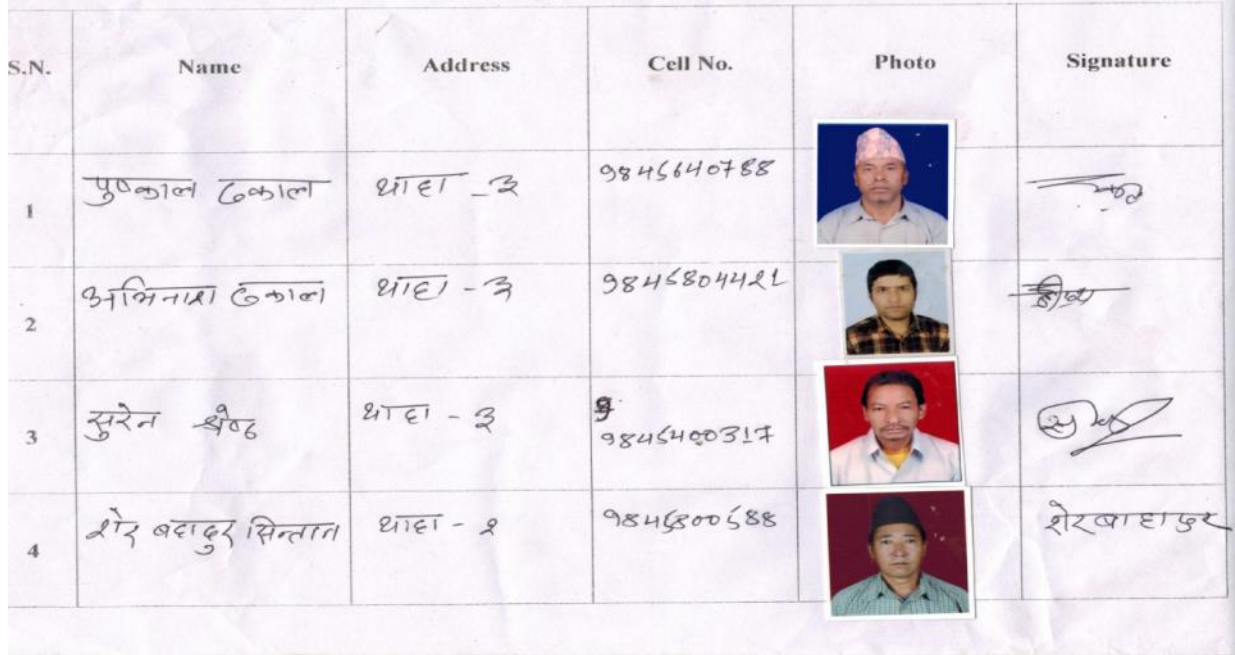 S.N. Name Address Cell No. Photo Signature
1 पुण्काल ढकाल थाहा - ३ 9845640788
2 अभिनाश ढकाल थाहा - ३ 9845804421
3 सुरेन श्रेष्ठ थाहा - ३ 9845400317
4 शेर बहादुर सिन्तान थाहा - २ 9845800588 शेर बाहादुर